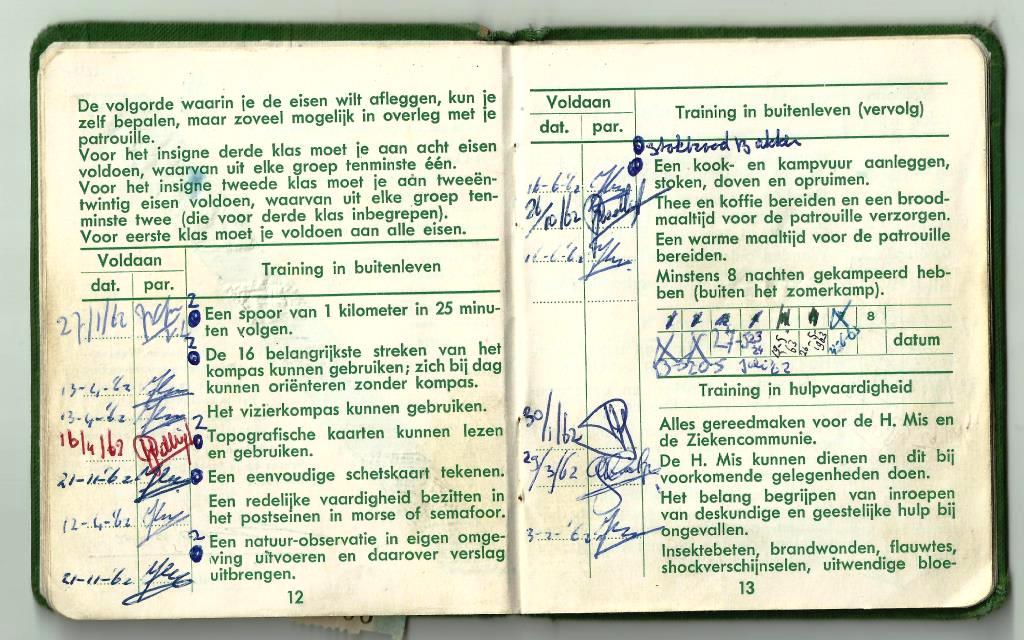 De volgorde waarin je de eisen wilt afleggen, kun je
zelf bepalen, maar zoveel mogelijk in overleg met je
patrouille.
Voor het insigne derde klas moet je aan acht eisen
voldoen, waarvan uit elke groep tenminste één.
Voor het insigne tweede klas moet je aan tweeën-
twintig eisen voldoen, waarvan uit elke groep ten-
minste twee (die voor derde klas inbegrepen).
Voor eerste klas moet je voldoen aan alle eisen.
Voldaan
dat. par.
Training in buitenleven
27/1/62
2
Een spoor van 1 kilometer in 25 minu-
ten volgen.
2
De 16 belangrijkste streken van het
kompas kunnen gebruiken; zich bij dag
kunnen oriënteren zonder kompas.
13-4-'62
13-4-'62
Het vizierkompas kunnen gebruiken.
16/4/62
2
Topografische kaarten kunnen lezen
en gebruiken.
21-11-'62
Een eenvoudige schetskaart tekenen.
12-4-'62
Een redelijke vaardigheid bezitten in
het postseinen in morse of semafoor.
21-11-'62
2
Een natuur-observatie in eigen omge-
ving uitvoeren en daarover verslag
uitbrengen.
12
Voldaan
dat. par.
Training in buitenleven (vervolg)
16-6-'62
Een kook- en kampvuur aanleggen,
stoken, doven en opruimen.
26/10/62
Thee en koffie bereiden en een brood-
maaltijd voor de patrouille verzorgen.
Een warme maaltijd voor de patrouille
bereiden.
Minstens 8 nachten gekampeerd heb-
ben (buiten het zomerkamp).
8
datum
Training in hulpvaardigheid
30/1/62
Alles gereedmaken voor de H. Mis en
de Ziekencommunie.
29/3/62
De H. Mis kunnen dienen en dit bij
voorkomende gelegenheden doen.
3-2-'62
Het belang begrijpen van inroepen
van deskundige en geestelijke hulp bij
ongevallen.
Insektebeten, brandwonden, flauwtes,
shockverschijnselen, uitwendige bloe-
13